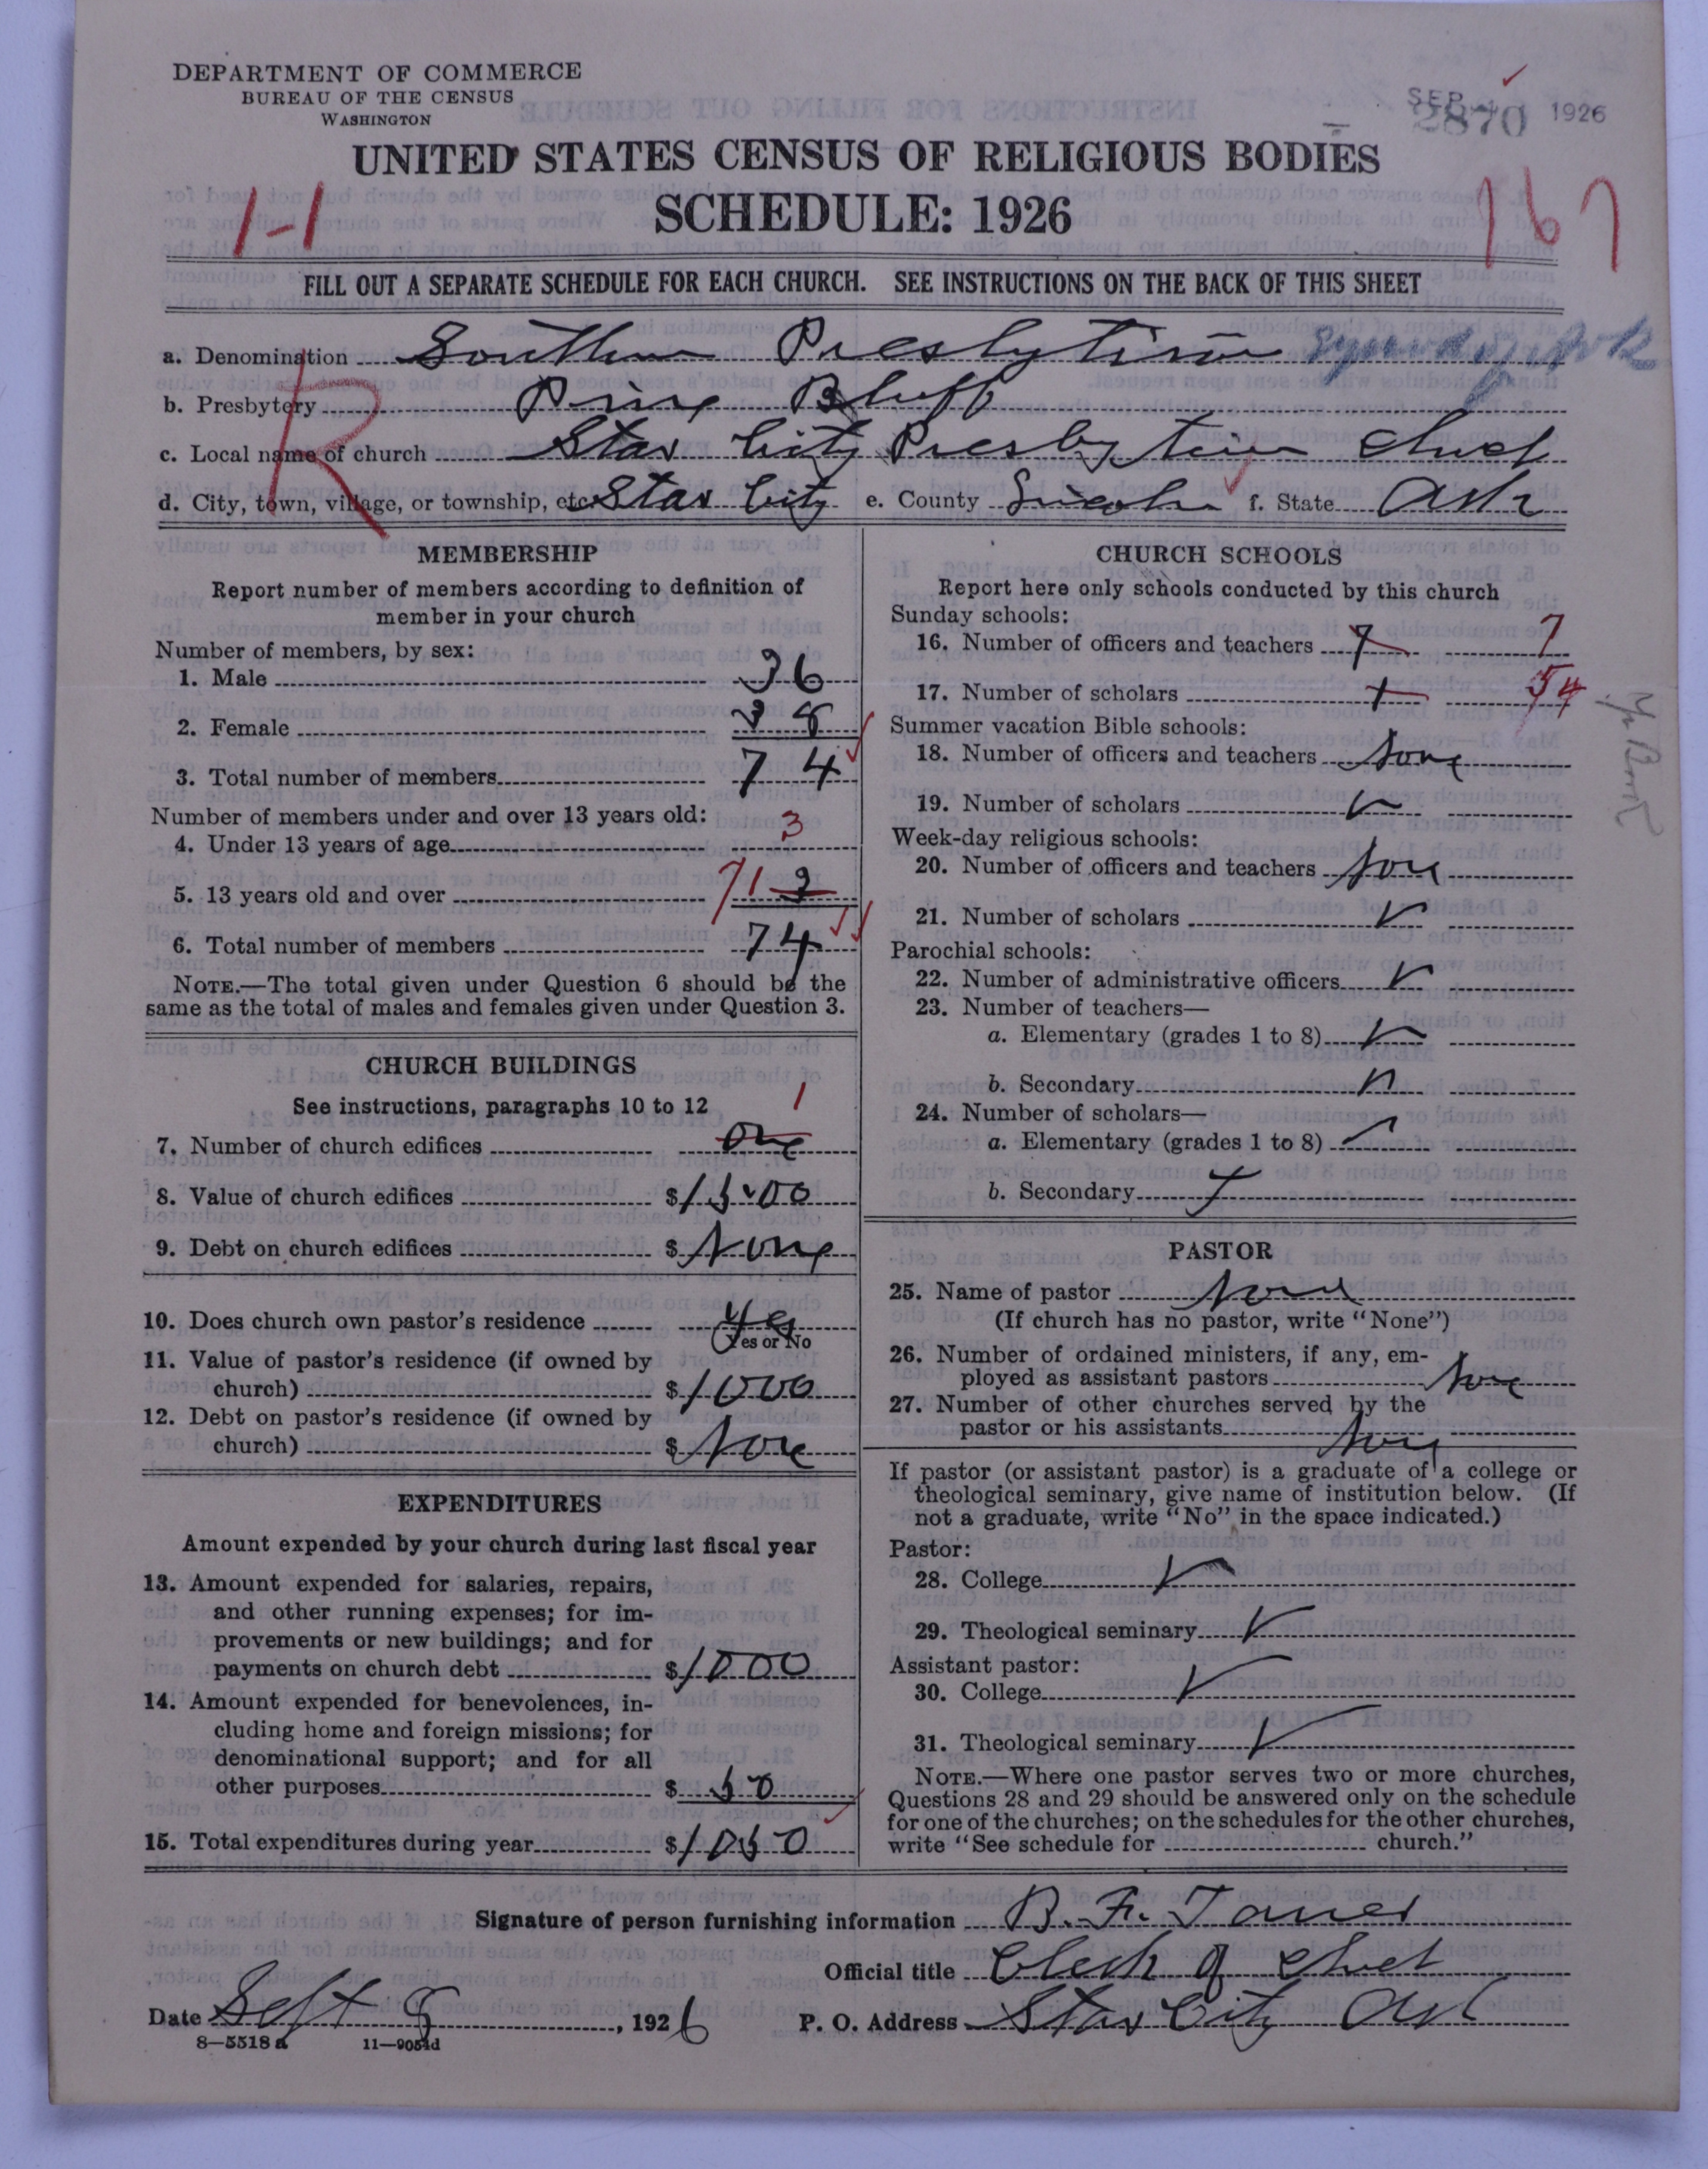 DEPARTMENT OF COMMERCE
BUREAU OF THE CENSUS
WASHINGTON
SEP 1926
2870
UNITED STATES CENSUS OF RELIGIOUS BODIES
SCHEDULE: 1926
1-1
167
FILL OUT A SEPARATE SCHEDULE FOR EACH CHURCH. SEE INSTRUCTIONS ON THE BACK OF THIS SHEET
R
a. Denomination Southern Presbyterian Synod of Ark
b. Presbytery Pine Bluff
c. Local name of church Star City Presbyterian Church
d. City, town, village, or township, etc. Star City e. County Lincoln f. State Ark
MEMBERSHIP
Report number of members according to definition of
member in your church
Number of members, by sex:
1. Male 36
2. Female 38
3. Total number of members 74
Number of members under and over 13 years old:
4. Under 13 years of age 3
5. 13 years old and over 71 3
6. Total number of members 74
NOTE.—The total given under Question 6 should be the
same as the total of males and females given under Question 3.
CHURCH BUILDINGS
See instructions, paragraphs 10 to 12
1
7. Number of church edifices one
8. Value of church edifices $1500
9. Debt on church edifices $ None
10. Does church own pastor's residence yes
Yes or No
11. Value of pastor's residence (if owned by
church) $1000
12. Debt on pastor's residence (if owned by
church) $ None
EXPENDITURES
Amount expended by your church during last fiscal year
13. Amount expended for salaries, repairs,
and other running expenses; for im-
provements or new buildings; and for
payments on church debt $1000
14. Amount expended for benevolences, in-
cluding home and foreign missions; for
denominational support; and for all
other purposes $ 50
15. Total expenditures during year $1050
CHURCH SCHOOLS
Report here only schools conducted by this church
Sunday schools:
16. Number of officers and teachers 7 7
17. Number of scholars 54
Yr Book
Summer vacation Bible schools:
18. Number of officers and teachers None
19. Number of scholars
Week-day religious schools:
20. Number of officers and teachers None
21. Number of scholars
Parochial schools:
22. Number of administrative officers
23. Number of teachers—
a. Elementary (grades 1 to 8)
b. Secondary
24. Number of scholars—
a. Elementary (grades 1 to 8)
b. Secondary
PASTOR
25. Name of pastor None
(If church has no pastor, write "None")
26. Number of ordained ministers, if any, em-
ployed as assistant pastors None
27. Number of other churches served by the
pastor or his assistants None
If pastor (or assistant pastor) is a graduate of a college or
theological seminary, give name of institution below. (If
not a graduate, write "No" in the space indicated.)
Pastor:
28. College
29. Theological seminary
Assistant pastor:
30. College
31. Theological seminary
NOTE.—Where one pastor serves two or more churches,
Questions 28 and 29 should be answered only on the schedule
for one of the churches; on the schedules for the other churches,
write "See schedule for church."
Signature of person furnishing information B. F. Taner
Official title Clerk of Church
Date Sept 8, 1926 P. O. Address Star City Ark
8—5518 a 11—9054d